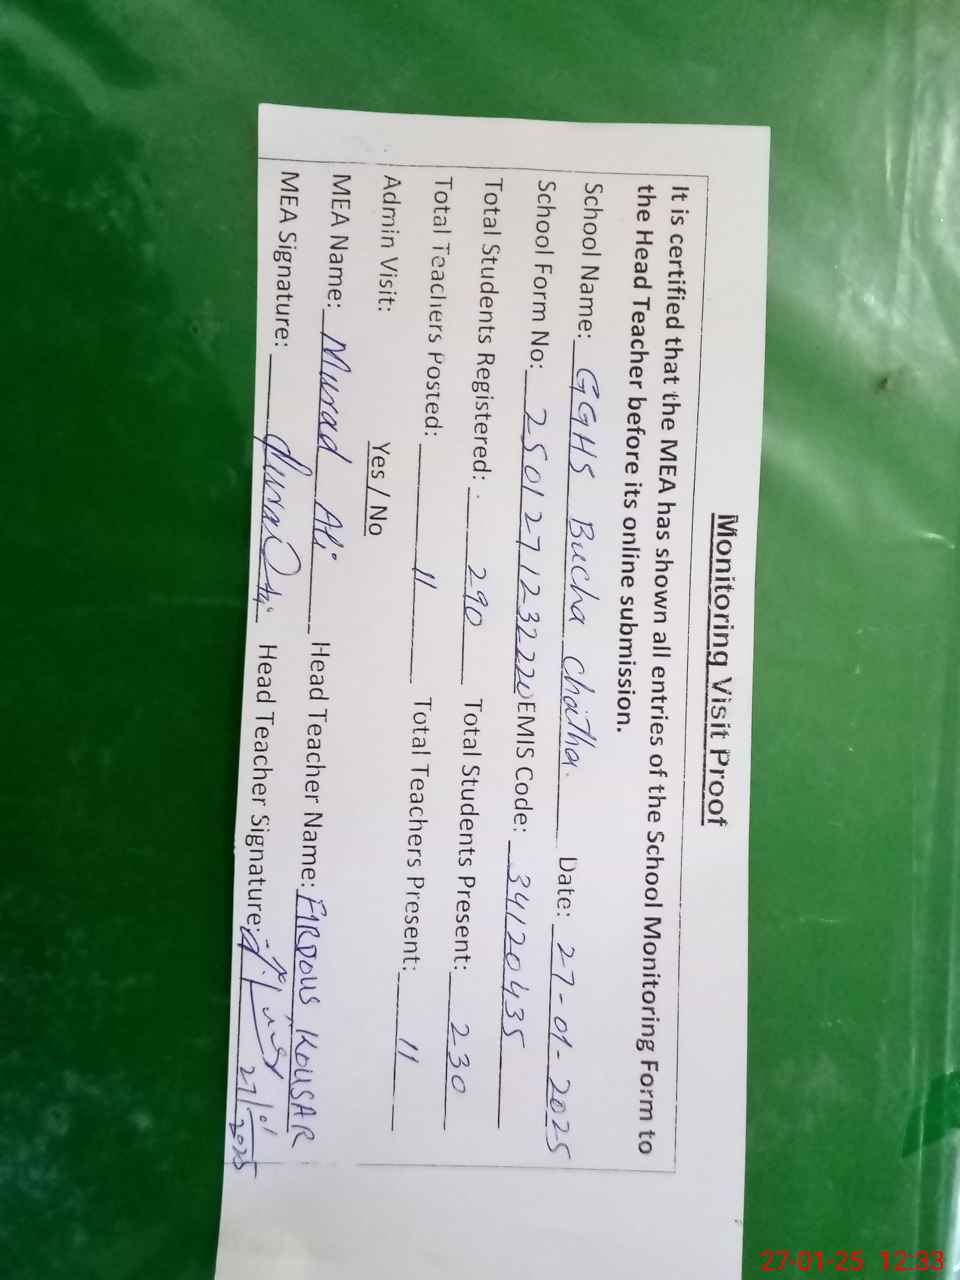 Monitoring Visit Proof
It is certified that the MEA has shown all entries of the School Monitoring Form to
the Head Teacher before its online submission.
School Name: GGHS Bucha Chattha. Date: 27-01-2025
School Form No: 250127123222 EMIS Code: 34120435
Total Students Registered: 290 Total Students Present: 230
Total Teachers Posted: 11 Total Teachers Present: 11
Admin Visit: Yes / No
MEA Name: Murad Ali Head Teacher Name: FIRDOUS KOUSAR
MEA Signature: Murad Ali Head Teacher Signature:
27/01/2025
27-01-25 12:33